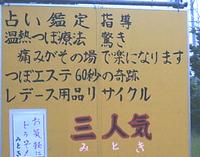 占い鑑定 指導
温熱つぼ療法 驚き
痛みがその場で楽になります
つぼエステ60秒の奇跡
レデース用品リサイクル
三人気
みとき
お気軽に
どうぞ!
みとき